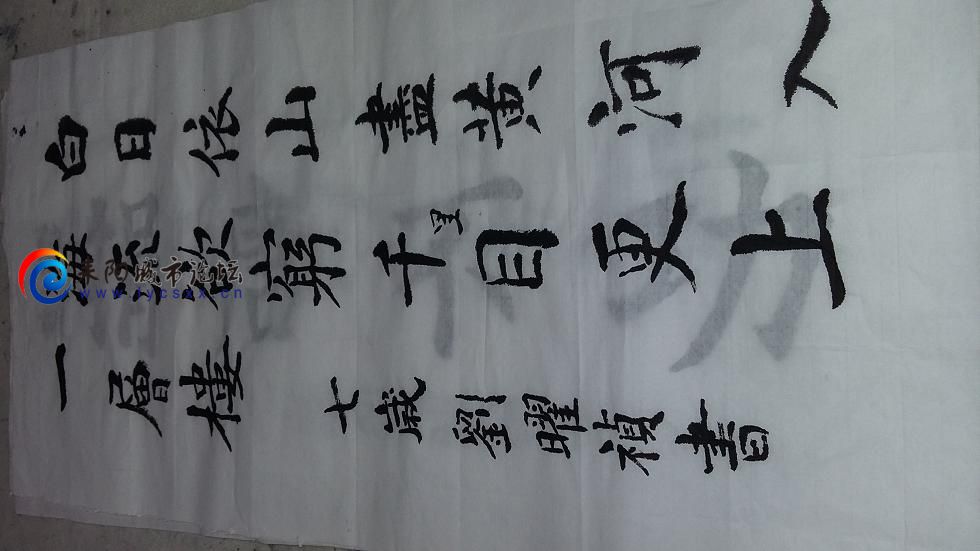 白日依山盡黃河入
海流欲窮千里目更上
一層樓
七歲劉曜禎書
莱阳城市论坛